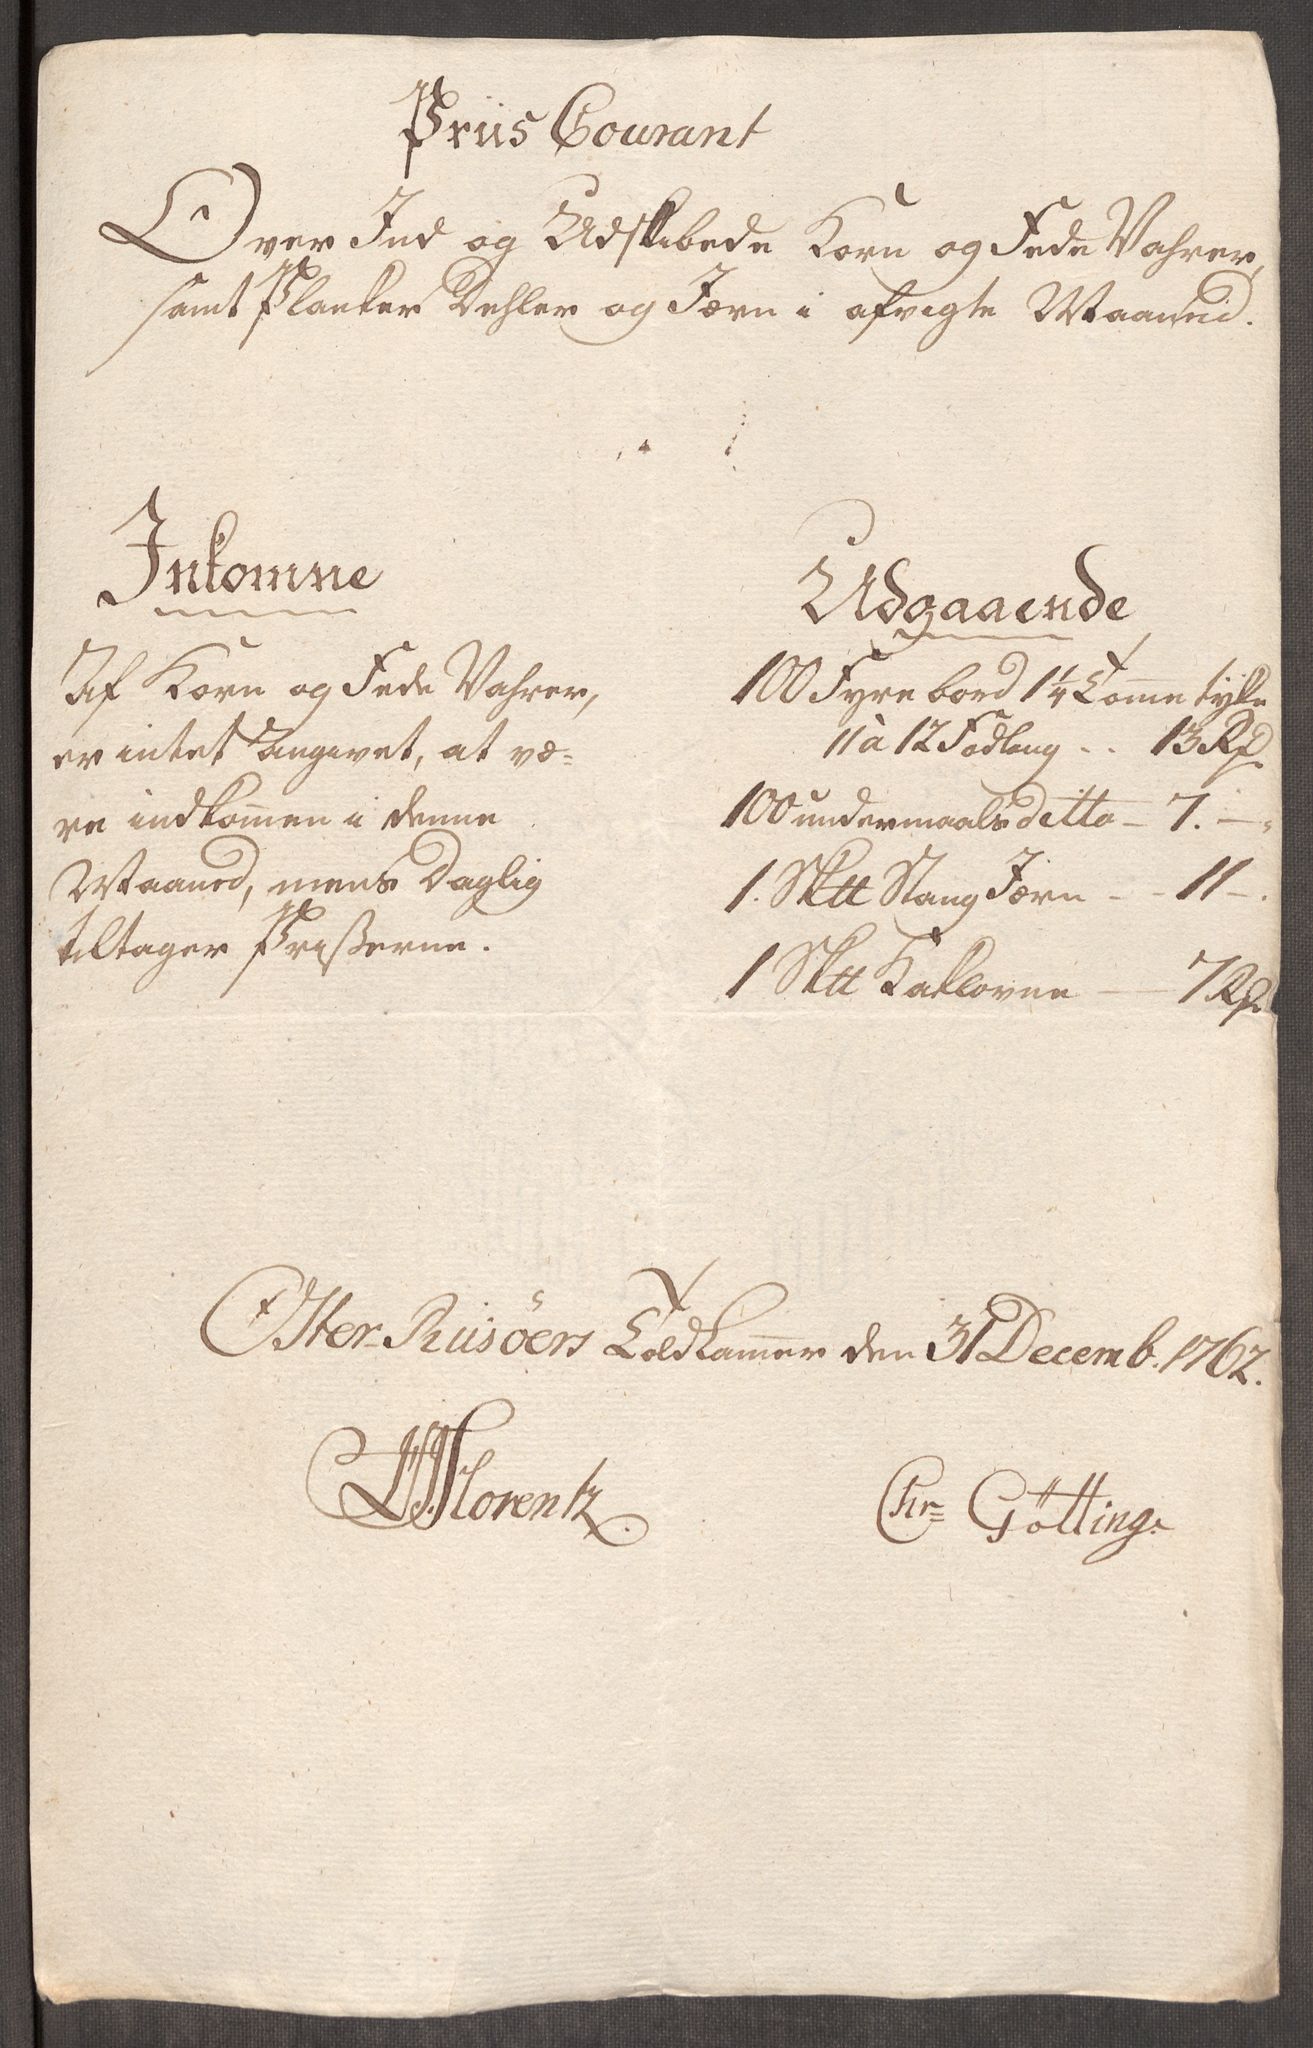 Priis Courant
Over Ind og Udskibede Korn og Fede Vahrer,
samt Planker Dehler og Jærn i afvigte Maaned.
Inkomne
Af Korn og Fede Vahrer,
er intet angivet, at væ-
re indkommen i denne
Maaned, mens Daglig
tiltager Prißerne.
Udgaaende
100 Fyre bord 1 1/4 Tomme tyke
11 à 12 Fod lang .. 13 Rd.
100 undermaals ditto — 7. —.
1. Sk tt Stang Jærn - - 11 —.
1 Sk tt Kaklovne — 7 Rd.
Oster-Riisöers Toldkammer den 31 Decemb. 1762.
Florentz.
Chr= Götting.